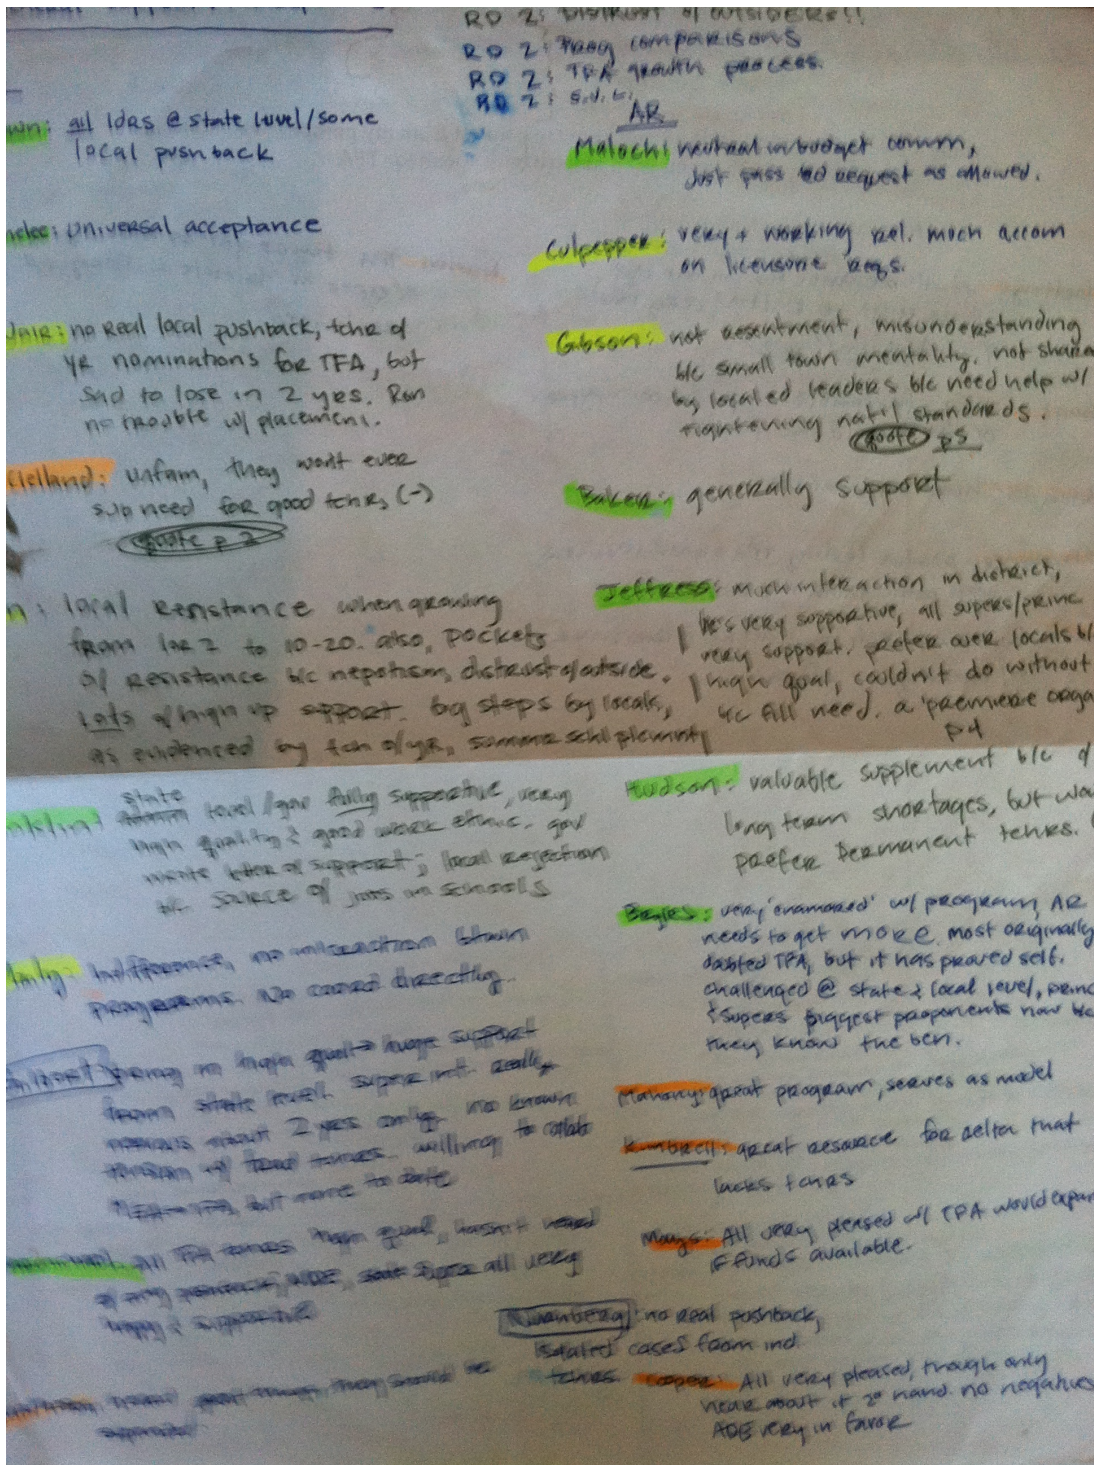 RD 2: DISTRUST of OUTSIDERS!!
RD 2: Prog comparisons
RD 2: TFA growth process.
RD 2:
wn: all ldrs @ state level/some
local pushback
universal acceptance
no real local pushback, tchr of
yr nominations for TFA, but
sad to lose in 2 yrs.
no trouble w/ placement.
Clelland: unfam, they won't ever
sub need for good tchrs, (-)
quote p 2
n: local resistance when growing
from 1 or 2 to 10-20. also, pockets
of resistance b/c nepotism, distrust of outside.
Lots of high up support. big steps by locals,
as evidenced by tch of yr, summer schl
state
level/gov fully supportive, very
high quality & good work ethic. gov
wrote letter of support; local rejection
b/c source of jobs in schools
indifference, no interaction btwn
programs. No coord directly.
high qual huge support
from state level.
about 2 yrs only. no known
tension w/ trad tchrs. willing to collab
but none to date
all TFA tchrs high qual, hasn't
all very
happy & supportive
supportive
AR
Maloch: neutral in budget comm,
Just pass ed request as allowed.
Culpepper: very + working rel. much accom
on licensure reqs.
Gibson: not resentment, misunderstanding
b/c small town mentality. not share
by local ed leaders b/c need help w/
tightening nat'l standards.
quote p5
Baker: generally support
Jeffress: much interaction in district,
he's very supportive, all supers/princ
very support. prefer over locals b/
high qual, couldn't do without
b/c fill need. a 'premiere orga
p4
Hudson: valuable supplement b/c of
long term shortages, but wo
prefer permanent tchrs.
very 'enamored' w/ program, AR
needs to get more. most originally
doubted TFA, but it has proved self.
challenged @ state & local level, princ
& supers biggest proponents now b/c
they know the ben.
Mahony: great program, serves as model
Kimbrell: great resource for delta that
lacks tchrs
Mays: All very pleased w/ TFA would expan
if funds available.
no real pushback,
isolated cases from ind.
tchrs
Cooper: All very pleased, though only
hear about it 2º hand. no negatives
ADE very in favor